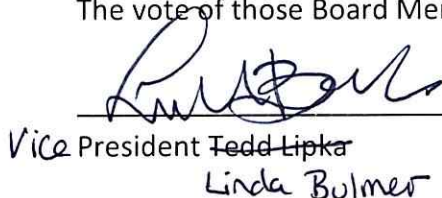 The vote of those Board Me
Vice President Tedd Lipka
Linda Bulmer